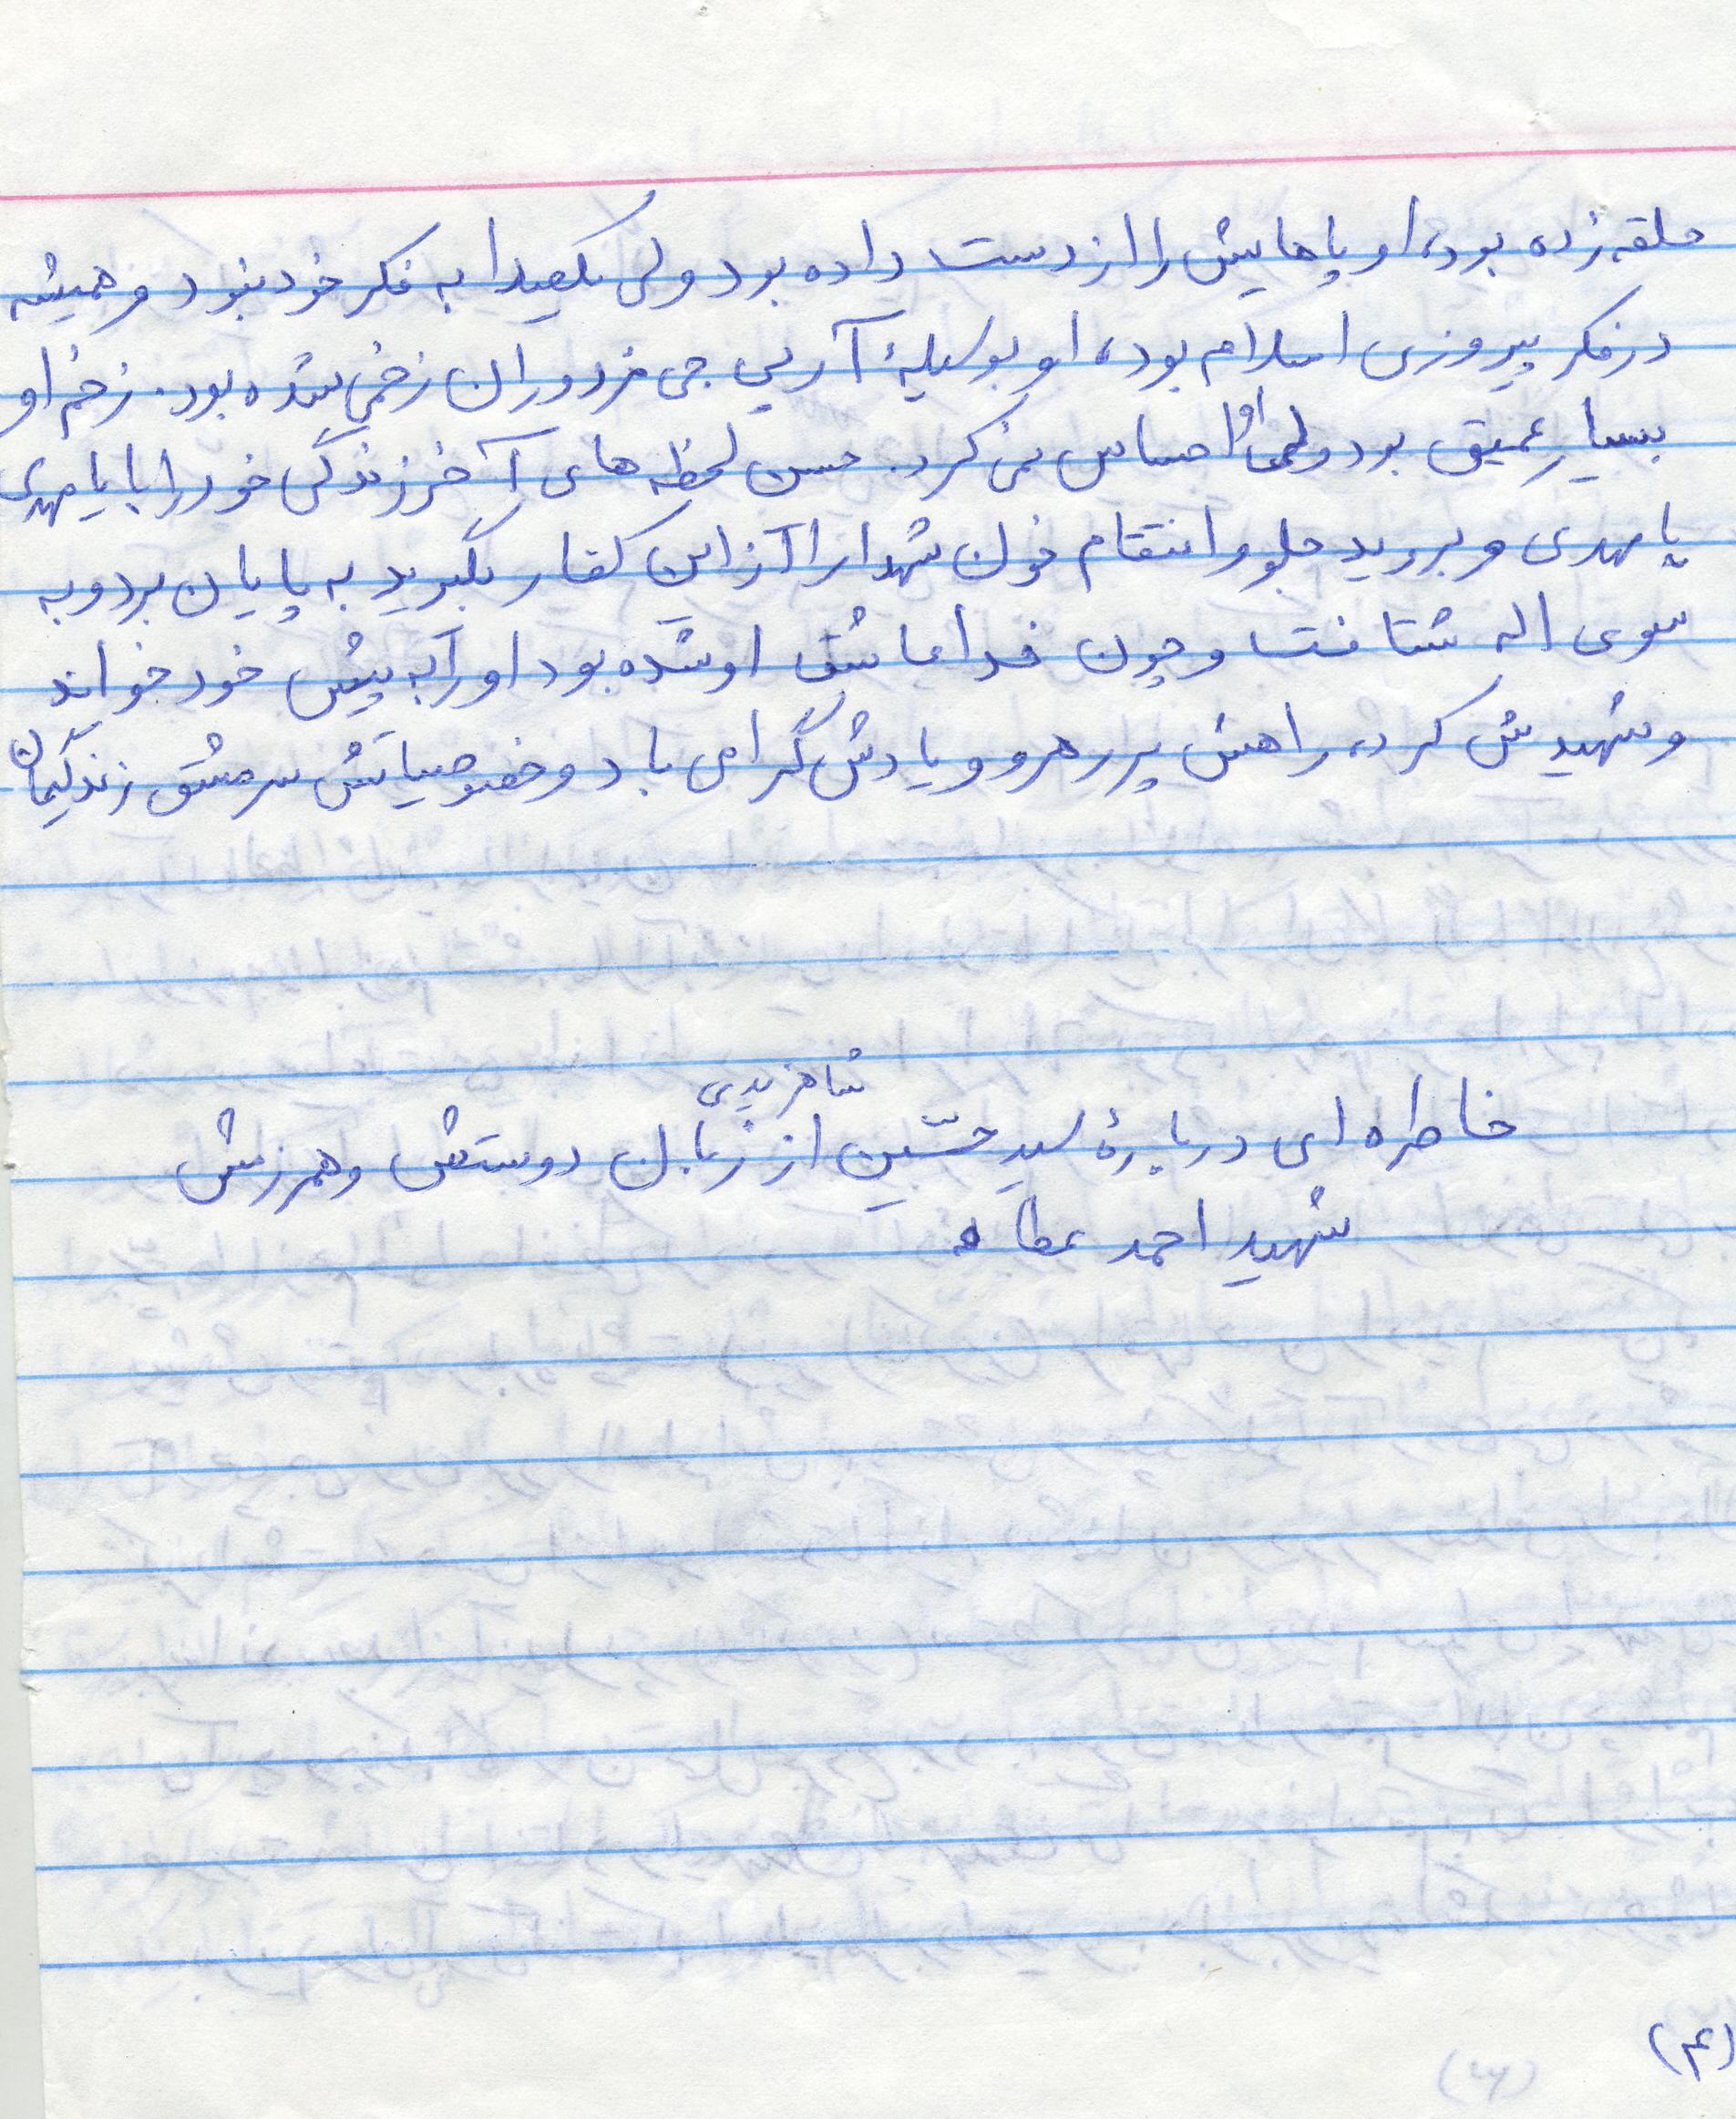 حلقه زده بود، او پاهایش را از دست داده بود ولی یکصدا به فکر خود نبود و همیشه
در فکر پیروزی اسلام بود، او بوسیلهٔ آرپی جی مزدوران زخمی شده بود. زخم او
بسیار عمیق بود ولی او احساس نمی کرد. حسن لحظه های آخر زندگی خود را با یا مهدی
یا مهدی و بروید جلو و انتقام خون شهدا را از این کفار بگیرید به پایان برد و به
سوی اله شتافت و چون خدا عاشق او شده بود او را به پیش خود خواند
و شهیدش کرد، راهش پر رهرو و یادش گرامی باد و خصوصیاتش سرمشق زندگیمان
خاطره ای دربارهٔ سید حسین از زبان دوستش و همرزمش
شهید احمد عطا
(۴)